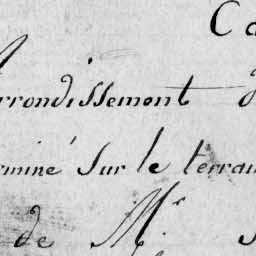 Ca
Arrondissement
rminé sur le terrain
de Mr